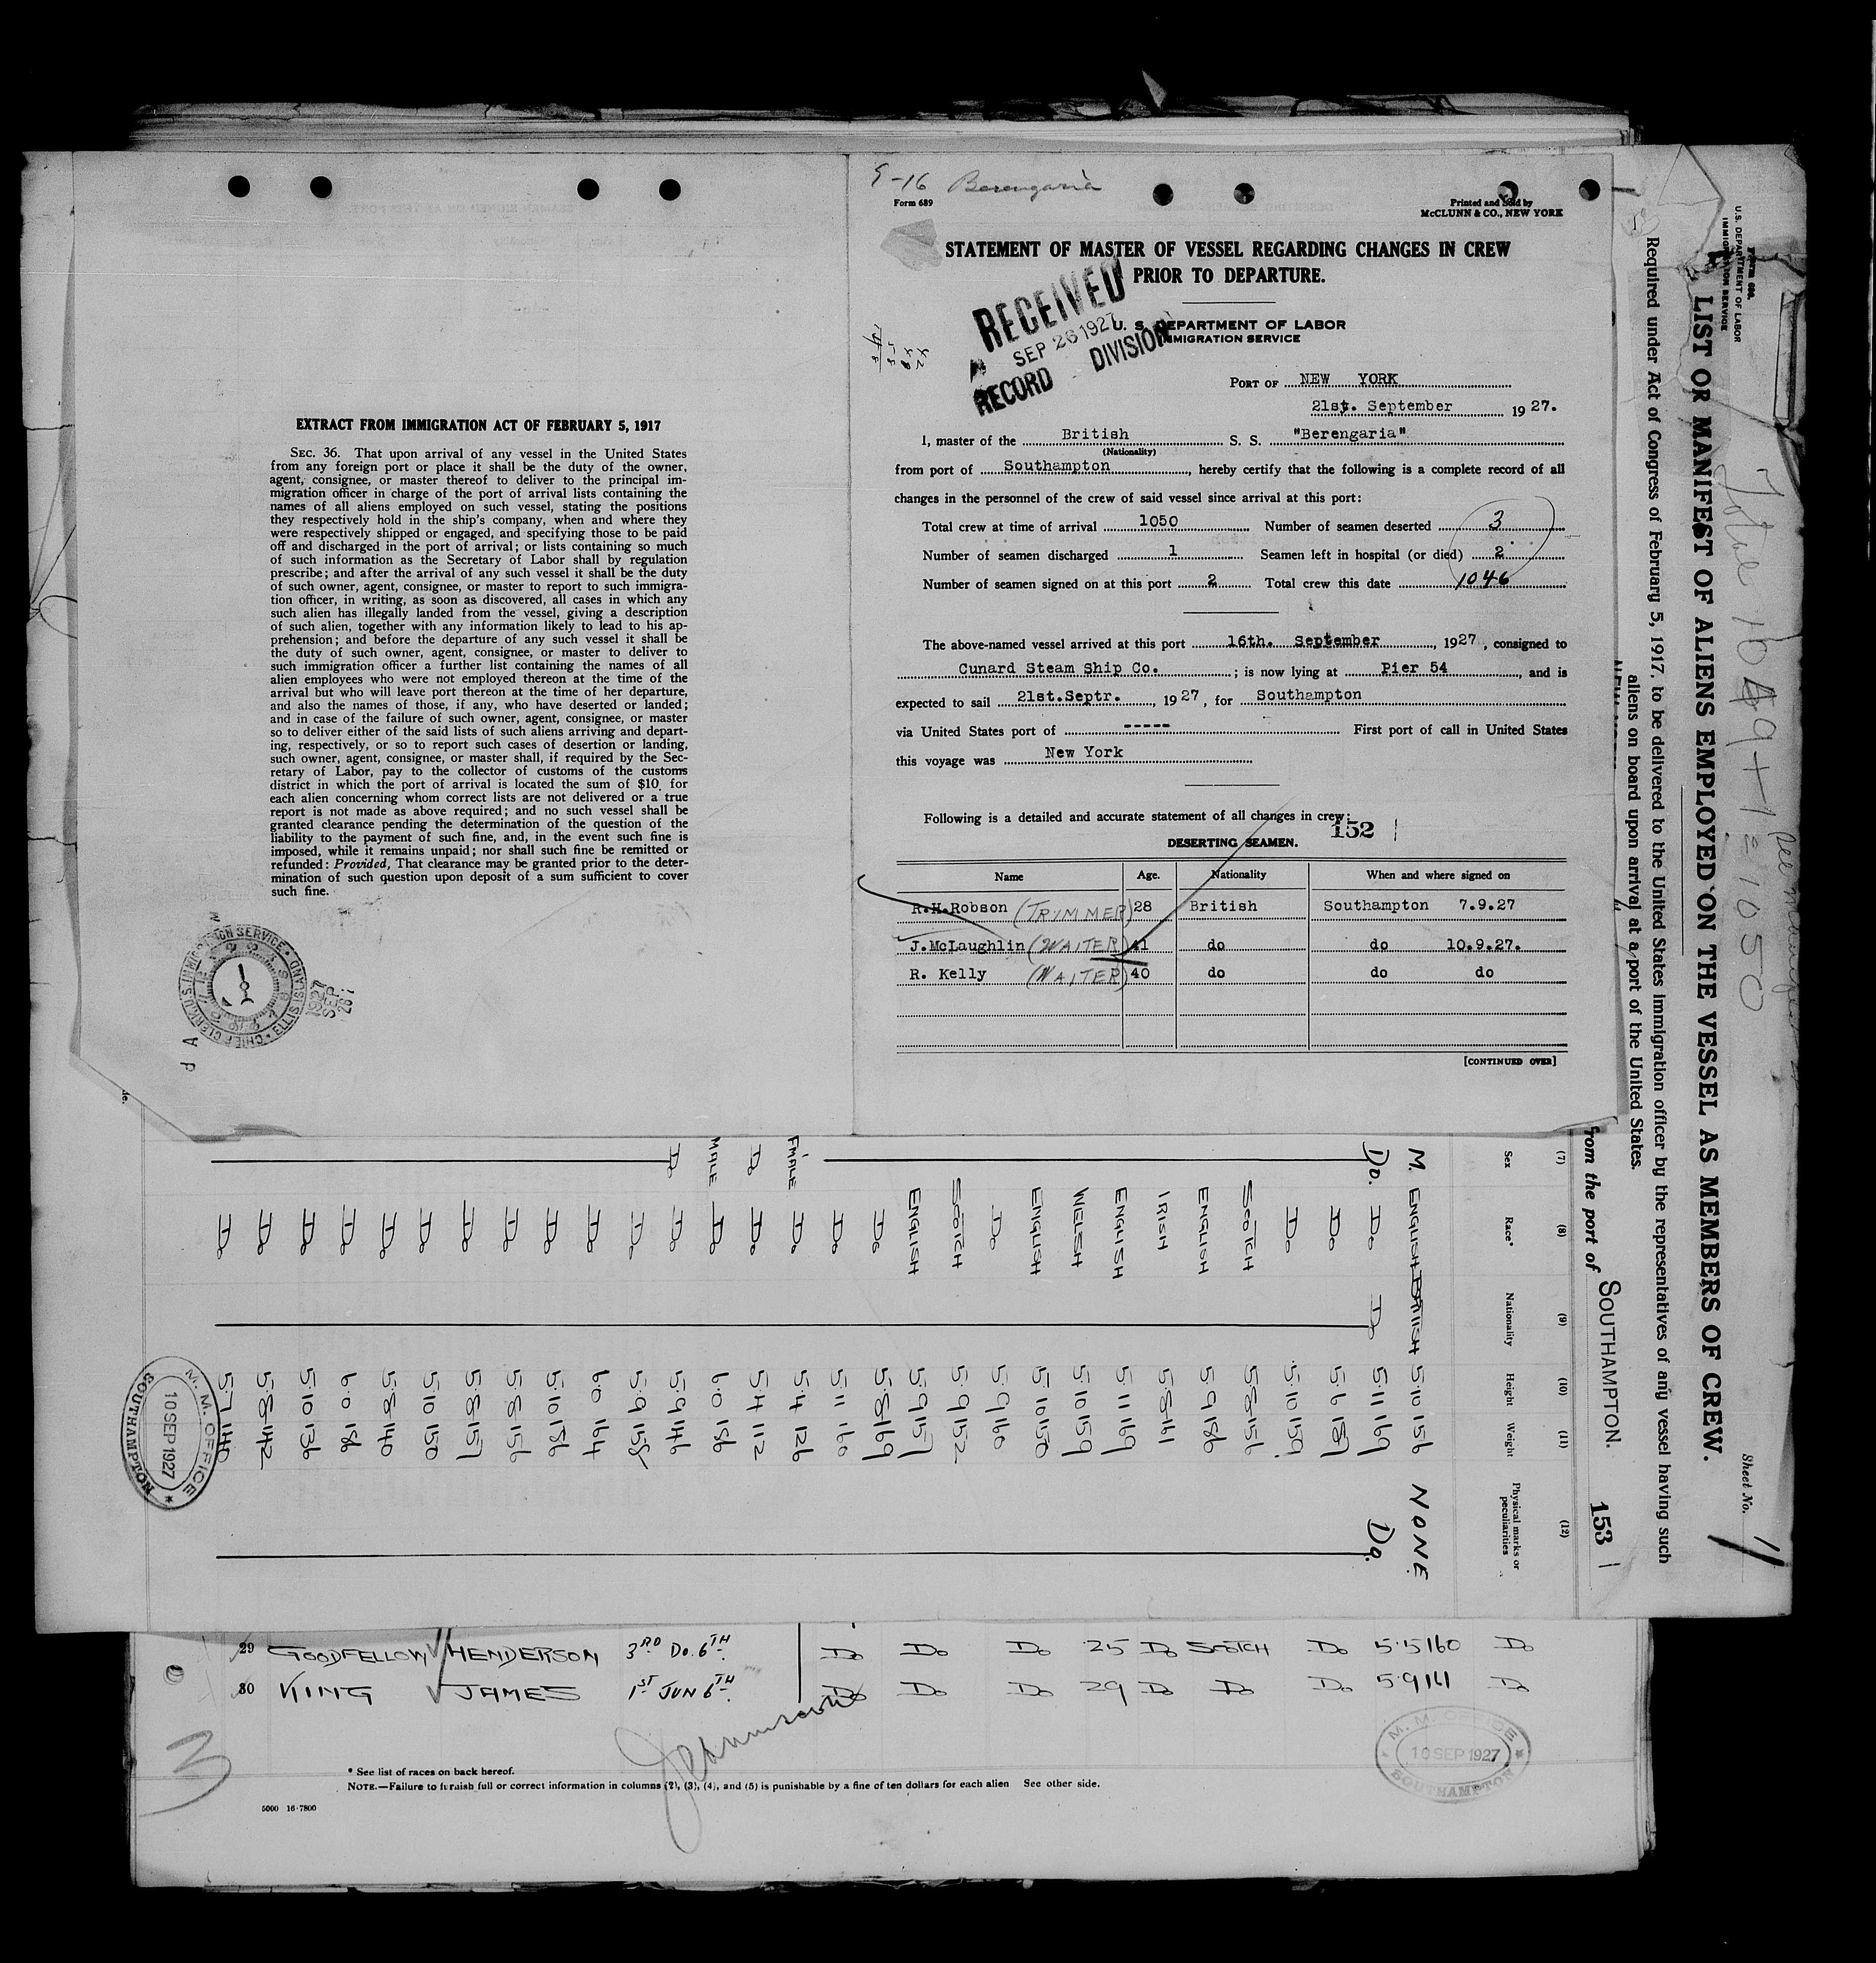 EXTRACT FROM IMMIGRATION ACT OF FEBRUARY 5, 1917
SEC. 36. That upon arrival of any vessel in the United States
from any foreign port or place it shall be the duty of the owner,
agent, consignee, or master thereof to deliver to the principal im-
migration officer in charge of the port of arrival lists containing the
names of all aliens employed on such vessel, stating the positions
they respectively hold in the ship's company, when and where they
were respectively shipped or engaged, and specifying those to be paid
off and discharged in the port of arrival; or lists containing so much
of such information as the Secretary of Labor shall by regulation
prescribe; and after the arrival of any such vessel it shall be the duty
of such owner, agent, consignee, or master to report to such immigra-
tion officer, in writing, as soon as discovered, all cases in which any
such alien has illegally landed from the vessel, giving a description
of such alien, together with any information likely to lead to his ap-
prehension; and before the departure of any such vessel it shall be
the duty of such owner, agent, consignee, or master to deliver to
such immigration officer a further list containing the names of all
alien employees who were not employed thereon at the time of the
arrival but who will leave port thereon at the time of her departure,
and also the names of those, if any, who have deserted or landed;
and in case of the failure of such owner, agent, consignee, or master
so to deliver either of the said lists of such aliens arriving and depart-
ing, respectively, or so to report such cases of desertion or landing,
such owner, agent, consignee, or master shall, if required by the Sec-
retary of Labor, pay to the collector of customs of the customs
district in which the port of arrival is located the sum of $10 for
each alien concerning whom correct lists are not delivered or a true
report is not made as above required; and no such vessel shall be
granted clearance pending the determination of the question of the
liability to the payment of such fine, and, in the event such fine is
imposed, while it remains unpaid; nor shall such fine be remitted or
refunded: Provided, That clearance may be granted prior to the deter-
mination of such question upon deposit of a sum sufficient to cover
such fine.
CHIEF CLERK U.S. IMMIGRATION SERVICE ELLIS ISLAND
1927
SEP
26
9-16 Berengaria
Form 689
Printed and Sold by
McCLUNN & CO., NEW YORK
STATEMENT OF MASTER OF VESSEL REGARDING CHANGES IN CREW
PRIOR TO DEPARTURE.
RECEIVED
SEP 26 1927
RECORD DIVISION
U. S. DEPARTMENT OF LABOR
IMMIGRATION SERVICE
PORT OF NEW YORK
21st. September 1927.
I, master of the British S. S. "Berengaria"
(Nationality)
from port of Southampton, hereby certify that the following is a complete record of all
changes in the personnel of the crew of said vessel since arrival at this port:
Total crew at time of arrival 1050 Number of seamen deserted 3
Number of seamen discharged 1 Seamen left in hospital (or died) 2
Number of seamen signed on at this port 2 Total crew this date 1046
The above-named vessel arrived at this port 16th. September, 1927, consigned to
Cunard Steam Ship Co.; is now lying at Pier 54, and is
expected to sail 21st.Septr., 1927, for Southampton
via United States port of ----- First port of call in United States
this voyage was New York
Following is a detailed and accurate statement of all changes in crew:
152
DESERTING SEAMEN.
Name Age. Nationality When and where signed on
R.H.Robson (TRIMMER) 28 British Southampton 7.9.27
J.McLaughlin (WAITER) 41 do do 10.9.27.
R. Kelly (WAITER) 40 do do do
[CONTINUED OVER]
U.S. DEPARTMENT OF LABOR
IMMIGRATION SERVICE
Sheet No. 11
LIST OR MANIFEST OF ALIENS EMPLOYED ON THE VESSEL AS MEMBERS OF CREW.
Required under Act of Congress of February 5, 1917, to be delivered to the United States immigration officer by the representatives of any vessel having such
aliens on board upon arrival at a port of the United States.
Total 1049 + 1 = 1050
from the port of SOUTHAMPTON. 153
(7) (8) (9) (10) (11) (12)
Sex Race* Nationality Height Weight Physical marks or peculiarities
M. ENGLISH BRITISH 5.10 156 NONE
Do. Do Do 5.11 169 Do.
Do 5.6 157
Do 5.10 159
SCOTCH 5.8 156
ENGLISH 5.9 156
IRISH 5.8 141
ENGLISH 5.11 169
WELSH 5.10 159
ENGLISH 5.10 150
Do 5.9 160
SCOTCH 5.9 152
ENGLISH 5.9 157
Do 5.8 169
Do 5.11 160
FMALE Do 5.4 126
Do Do 5.4 112
MALE Do 6.0 156
Do Do 5.9 146
Do 5.9 158
Do 6.0 164
Do 5.10 156
Do 5.8 156
Do 5.8 157
Do 5.10 150
Do 5.8 140
Do 6.0 156
Do 5.10 136
Do 5.8 142
Do 5.7 140
M. M. OFFICE
10 SEP 1927
SOUTHAMPTON
29 GOODFELLOW HENDERSON 3RD Do. 6TH Do Do Do 25 Do SCOTCH Do 5.5 160 Do
30 KING JAMES 1ST JUN 6TH Do Do Do 29 Do Do Do 5.9 161 Do
3
M. M. OFFICE
10 SEP 1927
SOUTHAMPTON
* See list of races on back hereof.
NOTE.—Failure to furnish full or correct information in columns (2), (3), (4), and (5) is punishable by a fine of ten dollars for each alien See other side.
5000 16-7800